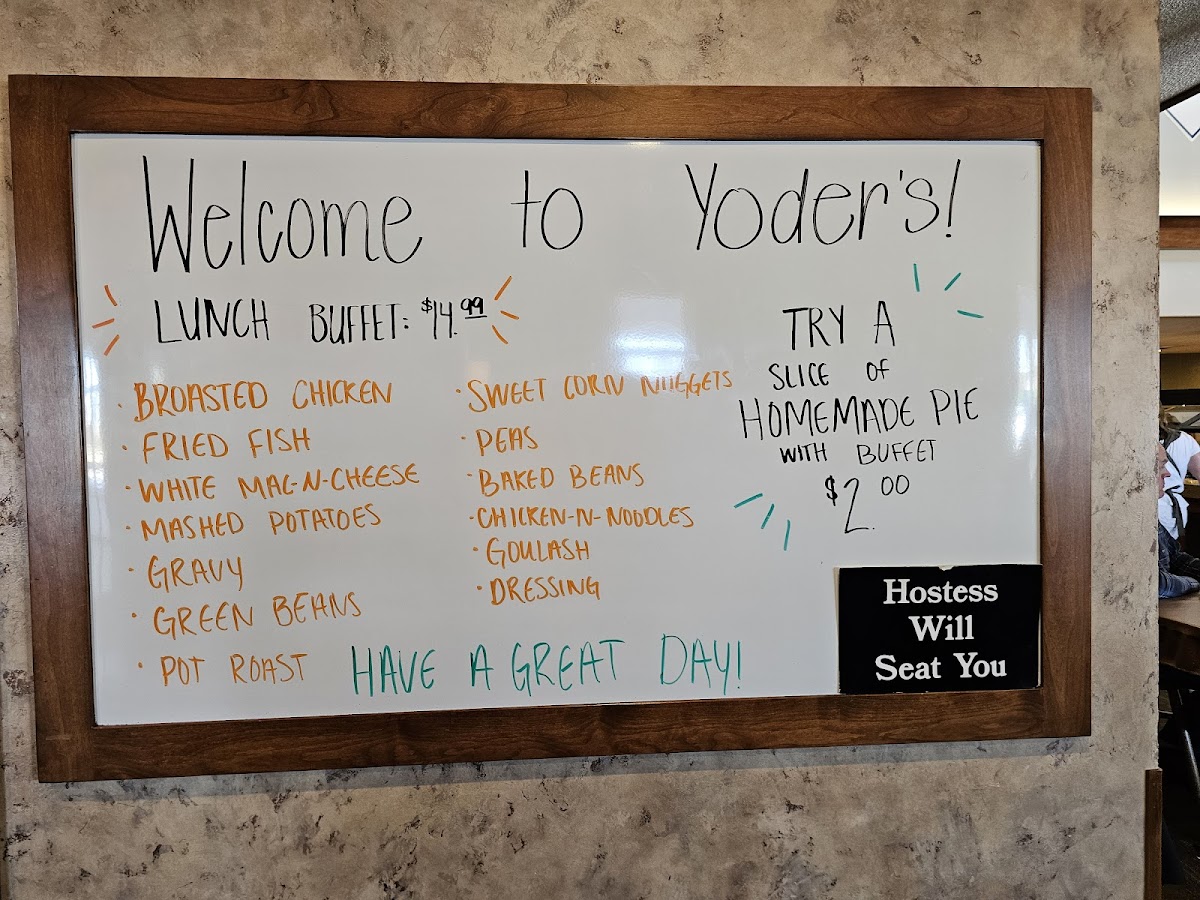 Welcome to Yoder's!
LUNCH BUFFET: $14.99
· BROASTED CHICKEN
· FRIED FISH
· WHITE MAC-N-CHEESE
· MASHED POTATOES
· GRAVY
· GREEN BEANS
· POT ROAST
· SWEET CORN NUGGETS
· PEAS
· BAKED BEANS
· CHICKEN-N-NOODLES
· GOULASH
· DRESSING
TRY A
SLICE OF
HOMEMADE PIE
WITH BUFFET
$2.00
HAVE A GREAT DAY!
Hostess
Will
Seat You